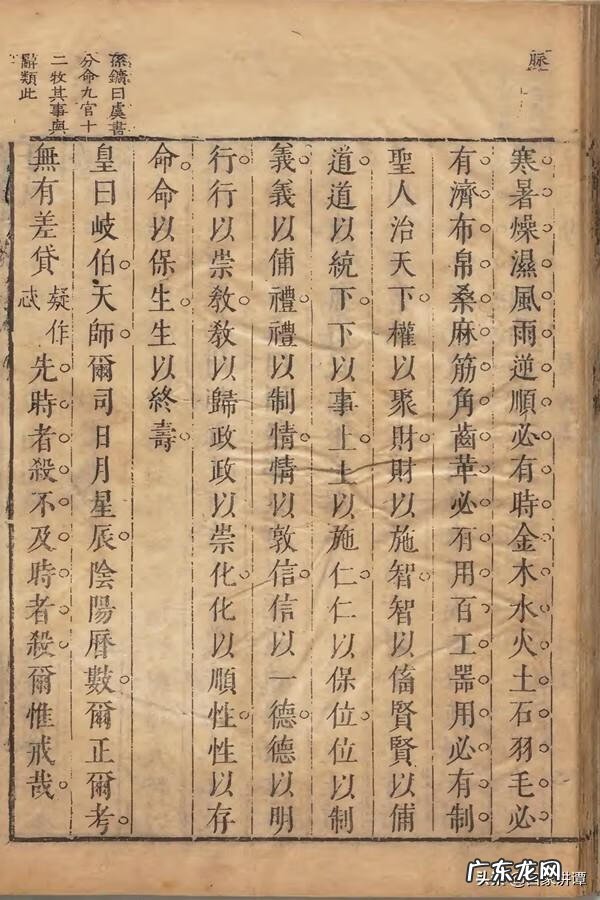 脈
孫鑛曰虞書
分命九官十
二牧其事與
辭類此
寒暑燥濕風雨逆順必有時金木水火土石羽毛必
有濟布帛桑麻筋角齒革必有用百工器用必有制
聖人治天下權以聚財財以施智智以備賢賢以備
道道以統下下以事上上以施仁仁以保位位以制
義義以備禮禮以制情情以敦信信以一德德以明
行行以崇教教以歸政政以崇化化以順性性以存
命命以保生生以終壽
皇曰岐伯天師爾司日月星辰陰陽曆數爾正爾考
無有差貸
疑作
忒
先時者殺不及時者殺爾惟戒哉
广东龙网